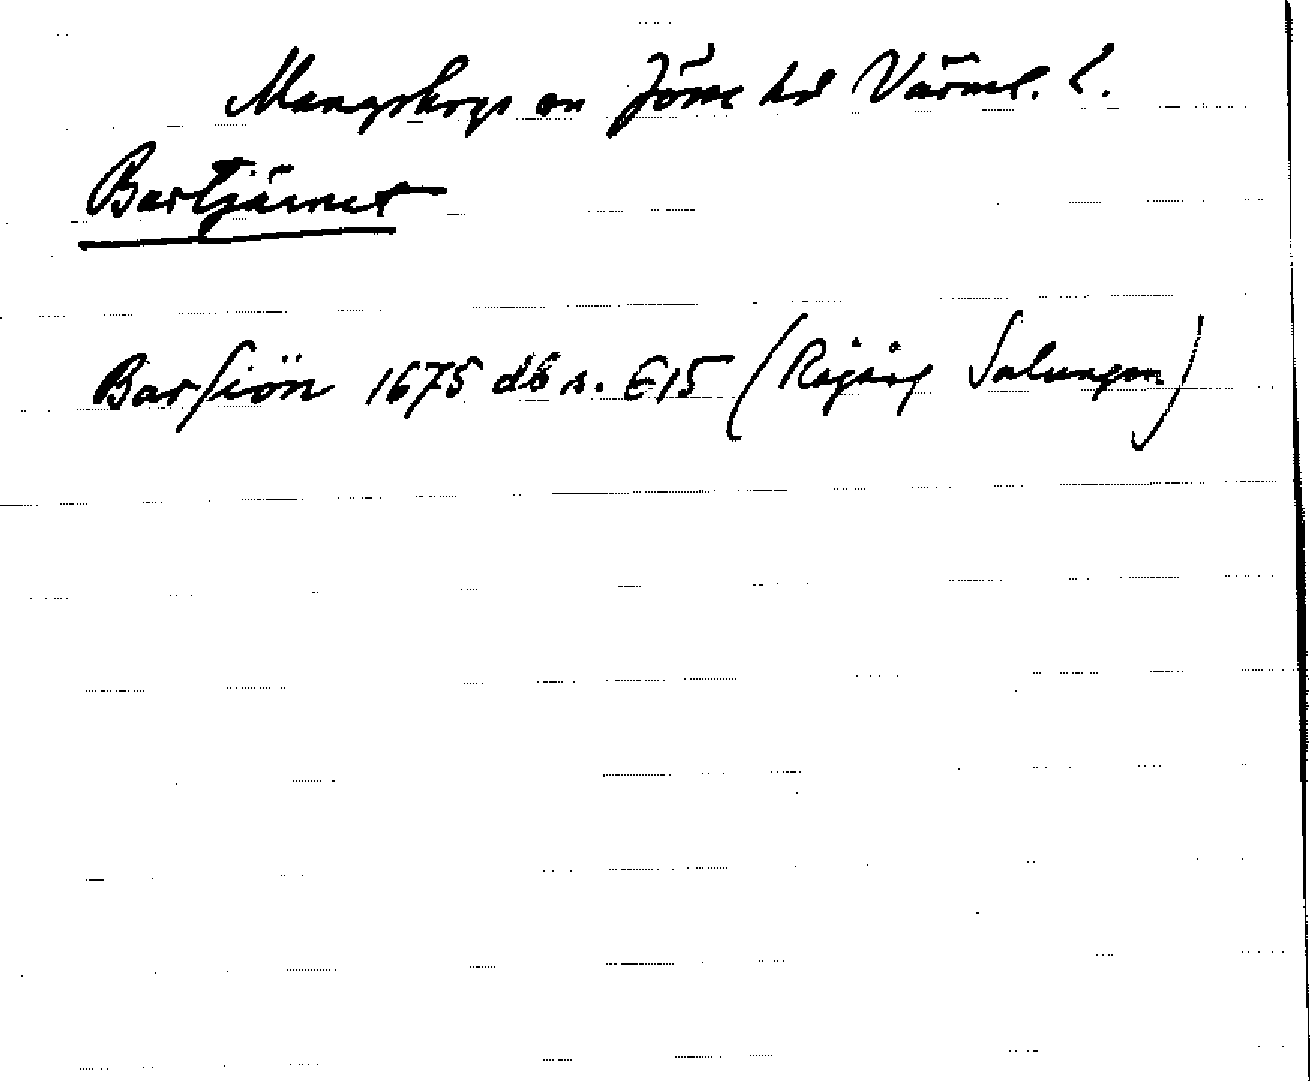 Mangskogs sn Jösse hd Värml. l.
Bartjärnet
Barsiön 1675 db s. 615 (Rågårg Salungen)